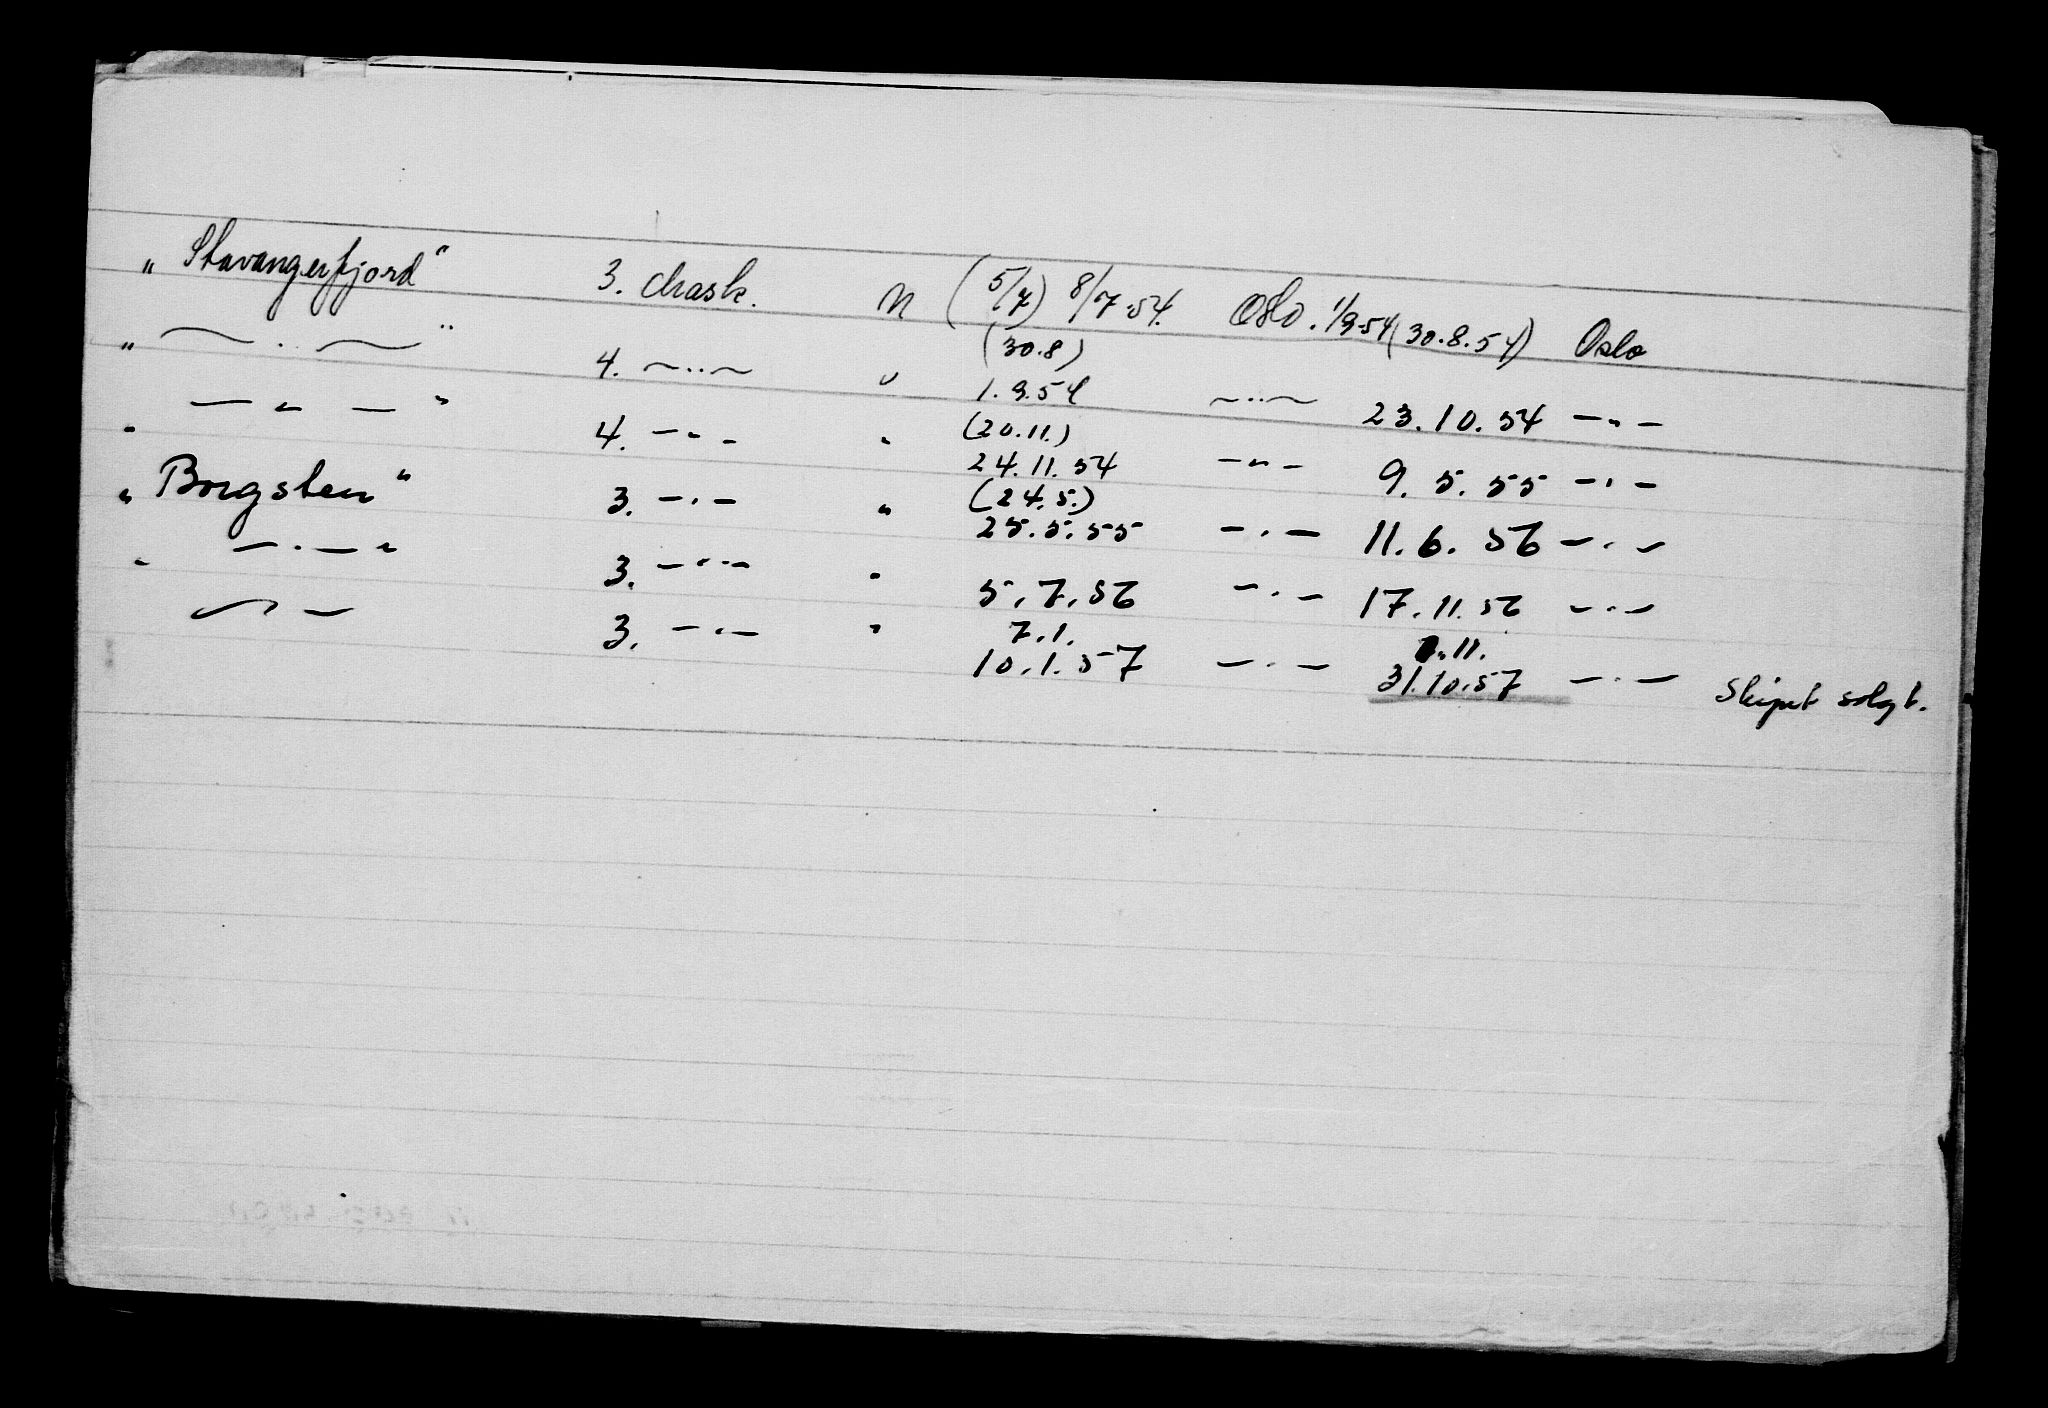 „ Stavangerfjord“ 3. Mask. N (5/7) 8/7-54. Oslo. 1/9-54 (30.8.54) Oslo
„ — . — “ 4. — .. — " (30.8) 1.9.54 — .. — 23.10.54 — " —
" — " — " 4. — " — " (20.11.) 24.11.54 — " — 9.5.55 — . —
„ Borgsten“ 3. — . — " (24.5.) 25.5.55 — . — 11.6.56 — . —
" — . — " 3. — .. — " 5.7.56 — . — 17.11.56 — . —
— — 3. — . — " 7.1. 10.1.57 — . — .11. 31.10.57 — . — Skipet solgt.